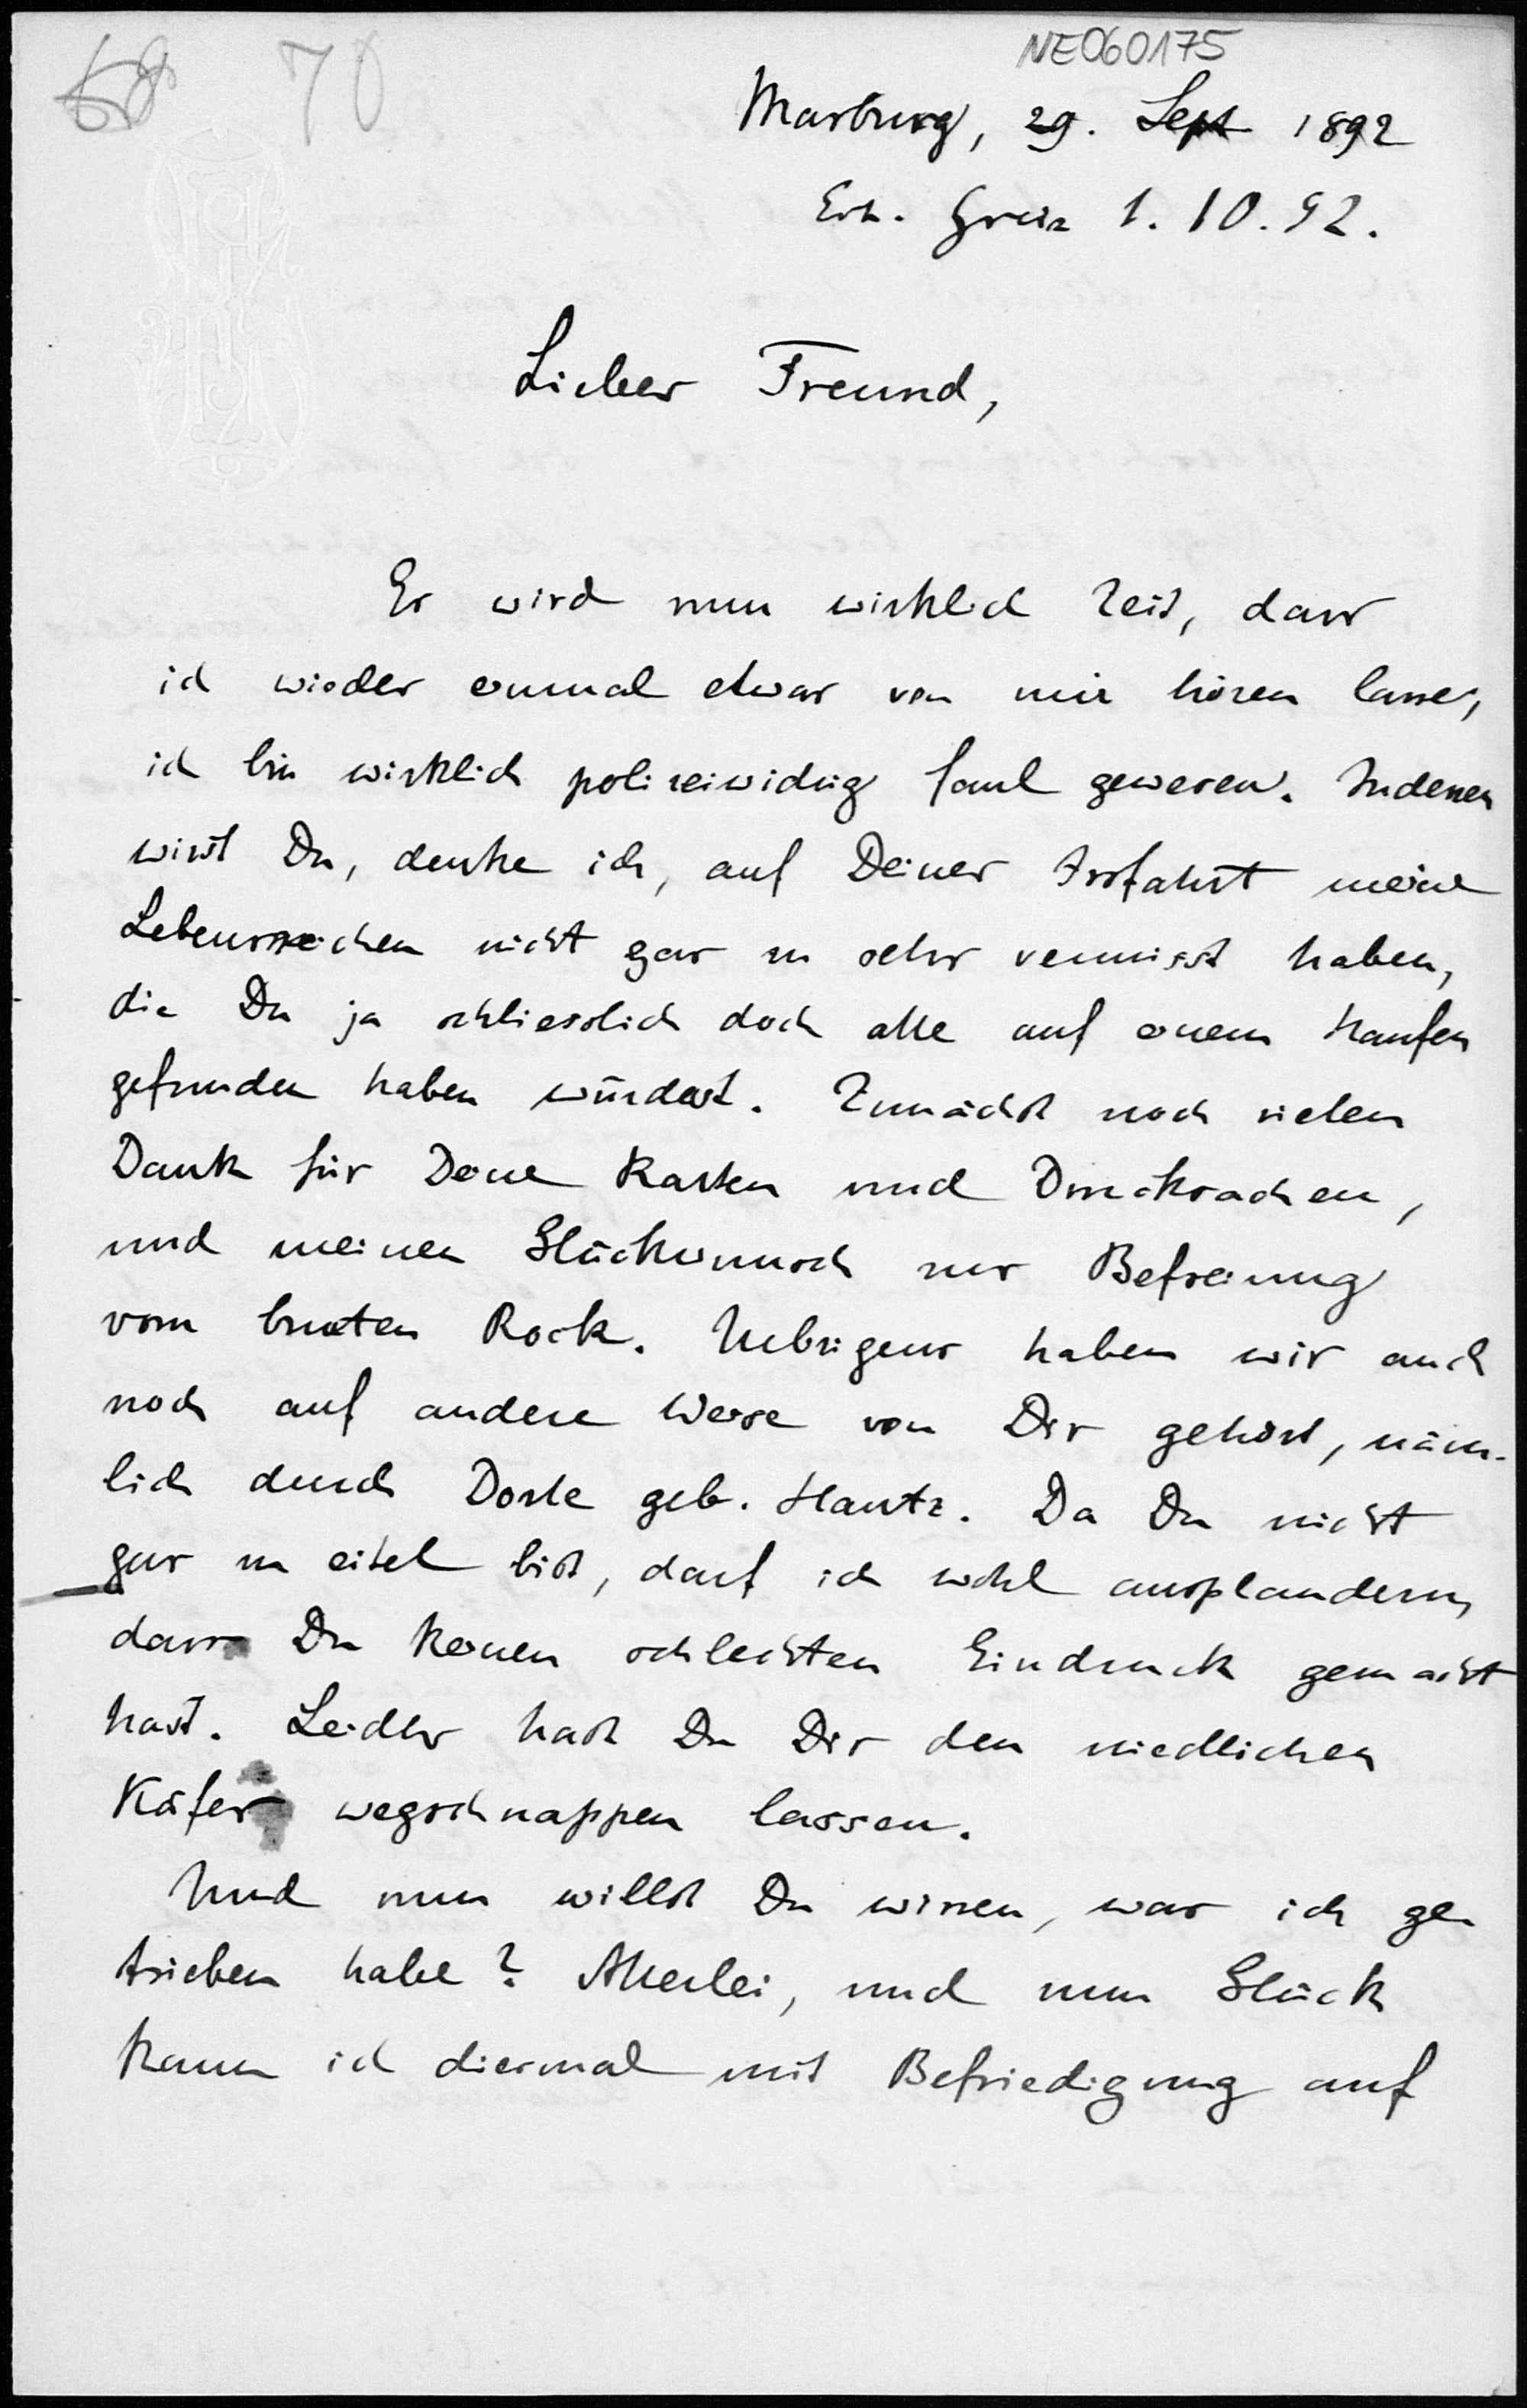 NE060175
68 70
Marburg, 29. Sept 1892
Erh. Greiz 1. 10. 92.
Lieber Freund,
Es wird nun wirklich Zeit, dass
ich wieder einmal etwas von mir hören lasse,
ich bin wirklich polizeiwidrig faul gewesen. Indessen
wirst Du, denke ich, auf Deiner Irrfahrt meine
Lebenszeichen nicht gar zu sehr vermisst haben,
die Du ja schliesslich doch alle auf einem Haufen
gefunden haben würdest. Zunächst noch vielen
Dank für Deine Karten und Drucksachen,
und meinen Glückwunsch zur Befreiung
vom bunten Rock. Uebrigens haben wir auch
noch auf andere Weise von Dir gehört, näm-
lich durch Dorle geb. Hantz. Da Du nicht
gar zu eitel bist, darf ich wohl ausplaudern,
dass Du keinen schlechten Eindruck gemacht
hast. Leider hast Du Dir den niedlichen
Käfer wegschnappen lassen.
Und nun willst Du wissen, was ich ge-
trieben habe? Allerlei, und zum Glück
kann ich diesmal mit Befriedigung auf